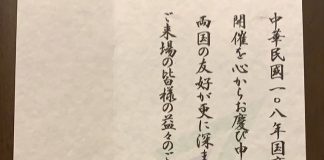 中華民國一〇八年国
開催を心からお慶び申
両国の友好が更に深ま
ご来場の皆様の益々のご